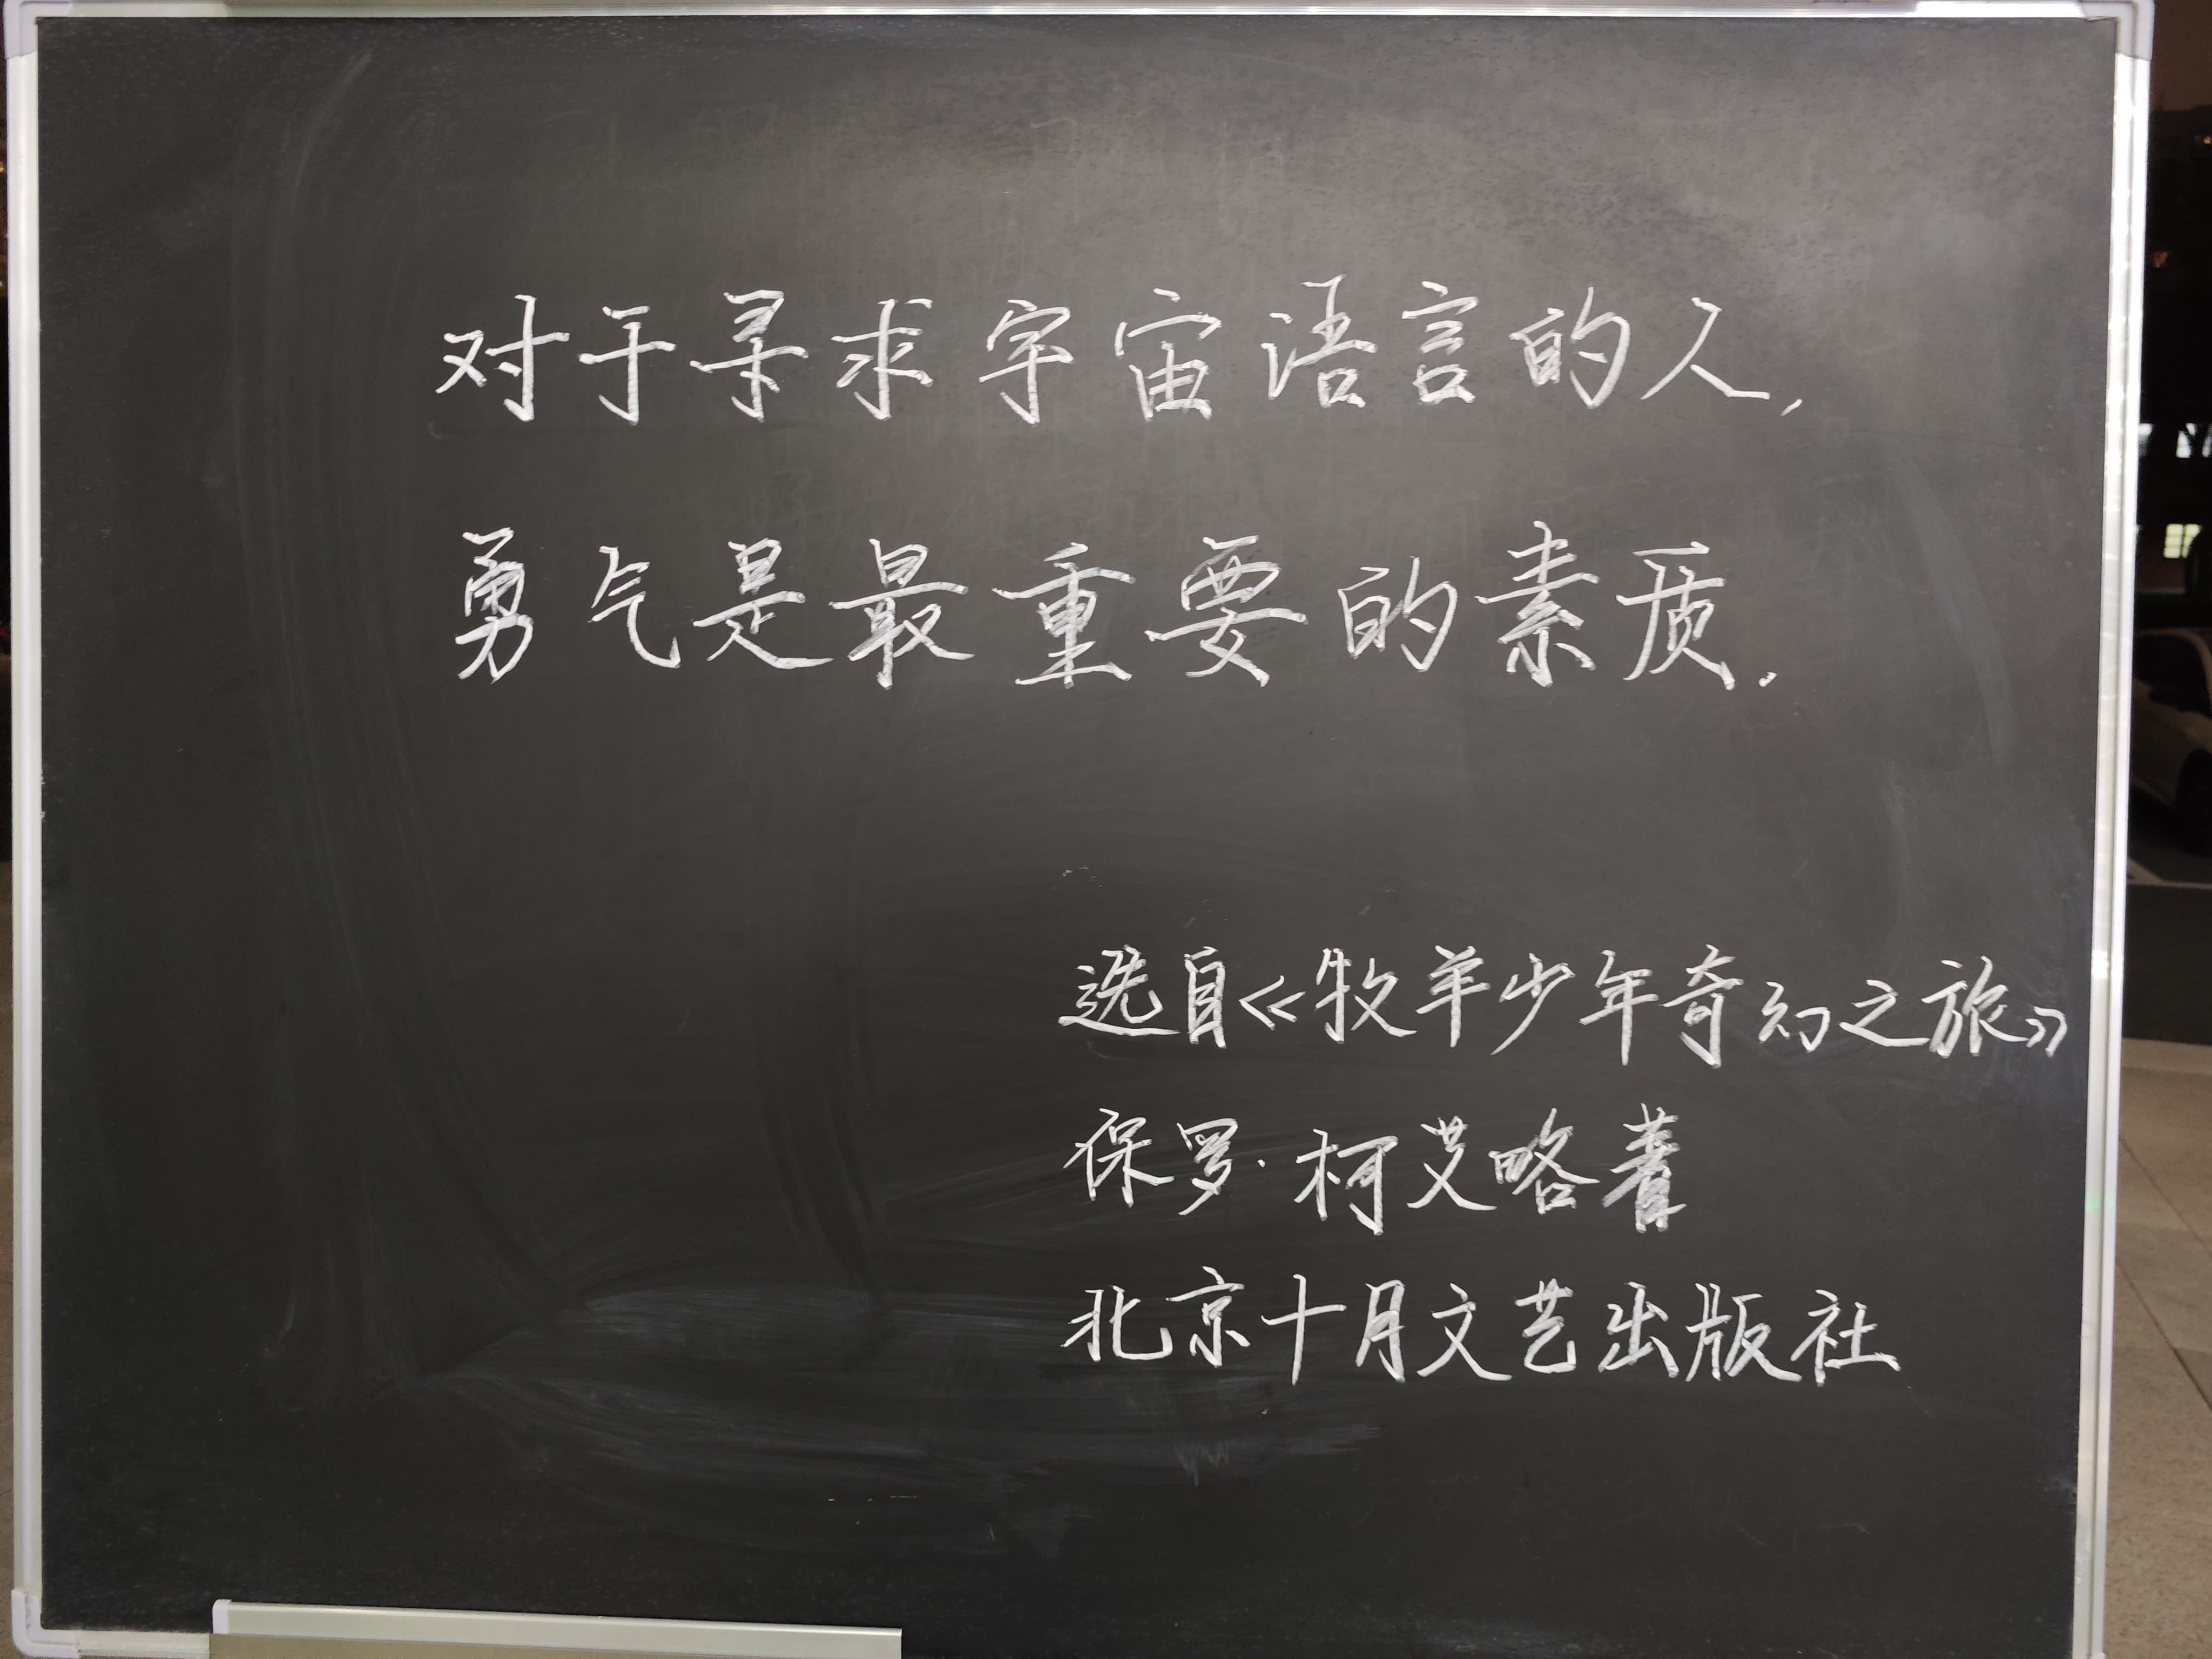 对于寻求宇宙语言的人,
勇气是最重要的素质.
选自《牧羊少年奇幻之旅》
保罗·柯艾略著
北京十月文艺出版社